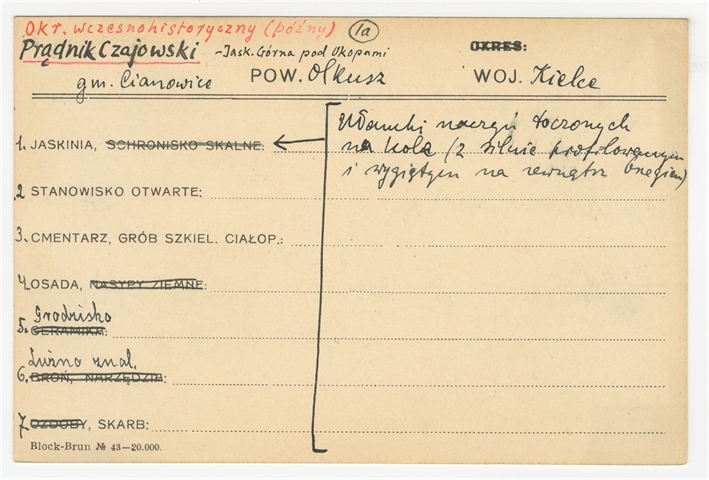 Okr. wczesnohistoryczny (późny) 1a
Prądnik Czajowski - Jask. Górna pod Okopami OKRES:
gm. Cianowice POW. Olkusz WOJ. Kielce
Ułamki naczyń toczonych
1. JASKINIA, SCHRONISKO SKALNE: na kole (z silnie profilowanym
i wygiętym na zewnątrz brzegiem)
2 STANOWISKO OTWARTE:
3. CMENTARZ, GRÓB SZKIEL. CIAŁOP.:
4. OSADA, NASYPY ZIEMNE:
Grodzisko
5. CERAMIKA:
Luźno znal.
6. BROŃ, NARZĘDZIA:
7. OZDOBY, SKARB:
Block-Brun № 43—20.000.